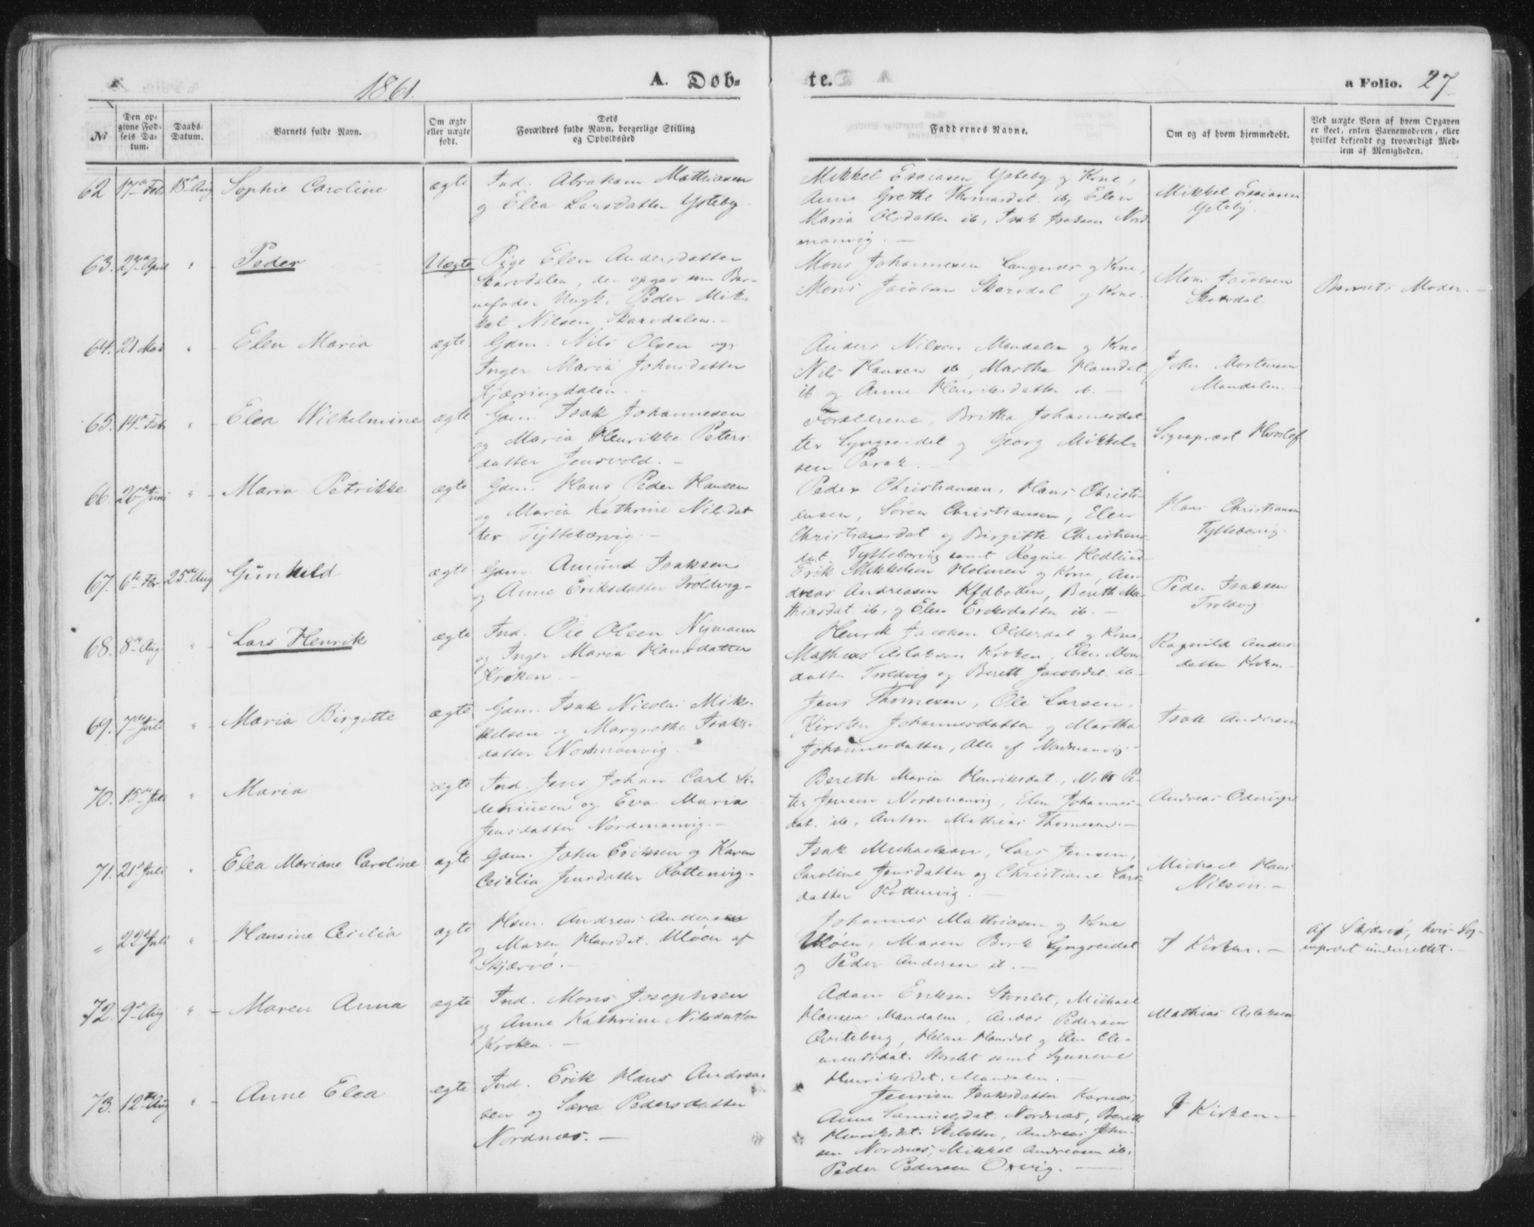 1861.
A. Døb-
te.
a Folio. 27.
№
Den op-
givne Fød-
sels Da-
tum.
Daabs
Datum.
Barnets fulde Navn.
Om ægte
eller uægte
født.
Dets
Forældres fulde Navn, borgerlige Stilling
og Opholdssted
Faddernes Navne.
Om og af hvem hjemmedøbt.
Ved uægte Børn af hvem Opgaven
er skeet, enten Barnemoderen, eller
hvilket bekjendt og troværdigt Med-
lem af Menigheden.
62 17de Feb 18de Aug Sophie Caroline ægte Ind. Abraham Mathiasen
og Elea Larsdatter Ysteby
Mikkel Esaiasen Ysteby og Kone,
Anne Grethe Thomasdat. ib, Elen
Maria Olsdatter ib, Isak Isaksen Nord-
manvig. —
Mikkel Esaiasen
Ysteby.
63. 27de April " - Peder Uægte Pige Elen Andersdatter
Skarsdalen, der opgav som Bar-
nefader Ungk. Peder Mik-
kel Nilsen Skarsdalen. —
Mons Johannesen Langnes og Kone,
Mons Jacobsen Skarsdal og Kone.
Mons Jacobsen
Skarsdal
Barnets Moder. -
64. 21 Mai " - Elen Maria ægte Gdm. Nils Olsen og
Inger Maria Johnsdatter
Kjærringdalen —
Anders Nilsen Mandalen og Kone
Nils Hansen ib, Martha Hansdat
ib og Anne Henriksdatter ib. —
John Mortensen
Mandalen. —
65. 14de Feb " - Elea Wilhelmine ægte Gdm. Isak Johannesen
og Maria Henrikke Peters-
datter Jensvold. —
Forældrene, Britha Johannesdat-
ter Lyngseidet og Georg Mikkel-
sen Parak. —
Sognepræst Hvoslef
66. 26de Juni " - Maria Petrikke ægte Gdm. Hans Peder Hansen
og Maria Kathrine Nilsdat-
ter Tyttebærvig. —
Peder Christiansen, Hans Christi-
ansen, Søren Christiansen, Elen
Christiansdat og Birgitte Christians-
dat. Tyttebærvig samt Regine Hedlund
Hans Christiansen
Tyttebærvig
67. 6te Febr 25de Aug Gunhild ægte Gdm. Amund Isaksen
og Anne Eriksdatter Troldvig -
Erik Mikkelsen Holmen og Kone, An-
dreas Andreasen Kfdbotten, Berith Ma-
thiasdat ib, og Elen Eriksdatter ib. —
Peder Isaksen
Troldvig
68. 8de Aug " - Lars Henrik ægte Ind. Ole Olsen Nymann
og Inger Maria Hansdatter
Kroken —
Henrik Jacobsen Olderdal og Kone
Mathias Aslaksen Kroken, Elen Mons-
datter Troldvig og Berith Jacobsdat ib —
Ragnild Anders-
datter Kroken —
69. 7de Juli " - Maria Birgitte ægte Gdm. Isak Nicolai Mik-
kelsen og Margrethe Isaks-
datter Nordmanvig. —
Jens Thomesen, Ole Larsen,
Kirsten Johannesdatter og Martha
Johannesdatter, Alle af Nordmanvig. —
Isak Andersen
70. 18de Juli " - Maria ægte Ind. Jens Johan Carl
og Eva Maria
Jensdatter Nordmanvig. —
Bereth Maria Henriksdat., Nils Pe-
ter Jensen Nordmanvig, Elen Johannes-
dat. ib, Anton Mathias Thomesen —
Andreas
71. 21de Juli " - Elea Mariane Caroline ægte Gdm. John Eriksen og Karen
Cecilia Jensdatter Rottenvig -
Isak Michaelsen, Lars Jensen,
Caroline Jensdatter og Christiane Lars-
datter Rottenvig —
Michael Hans
Nilsen. —
" 22de Juli " - Hansine Cecilia ægte Hsm. Andreas Andersen
og Maren Hansdat. Uløen af
Skjærvø. —
Johannes Mathiasen og Kone
Uløen, Maren Berk Lyngseidet
og Peder Andersen ib. —
I Kirken. —
Af Skjærvø, hvis Sog-
nepræst underrettet. —
72. 9de Aug " - Maren Anna ægte Ind. Mons Josephsen
og Anne Kathrine Nilsdatter
Kroken —
Adam Eriksen Skrelet, Michael
Hansen Mandalen, Anders Pedersen
Qviteberg, Helene Hansdat og Elen Cle-
mentsdat. Skrelet samt Synneve
Henriksdat. Mandalen. —
Mathias Aslaksen
73. 12te Aug " - Anne Elea ægte Ind. Erik Hans Andrea-
sen og Sara Pedersdatter
Nordnæs. —
Isaksdatter Karnes,
Anne Samuelsdat. Nordnæs, Berith
Henriksdat. Andreas John-
sen Nordnæs, Mikkel Andreasen ib.
Peder Pedersen Oxvig. —
I Kirken —